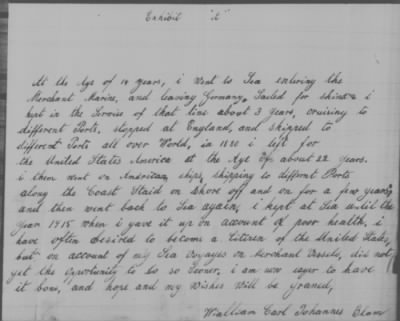 Exhibit "d"
At the Age of 18 years, i went to Sea entering the
Merchant Marine, and leaving Germany, Sailed for
kept in the Service of that line about 3 years, cruising to
different Ports, stopped at England, and skipped to
different Ports all over World, in 1880 i left for
the United States America at the Age of about 22 years.
i them went on American ships, shipping to diffrnt Ports
along the Coast Staid on Shore off and on for a few years,
and then went back to Sea again, i kept at Sea until the
year 1915 when i gave it up on account of poor health, i
have often desired to become a Citizen of the United States,
but on account of my Sea Voyages on Merchant Vessels, did not
get the Opportunity to do so Sooner, i am now eager to have
it done, and hope and my Wishes Will be Graned,
Wialliam Carl Johannes Elam